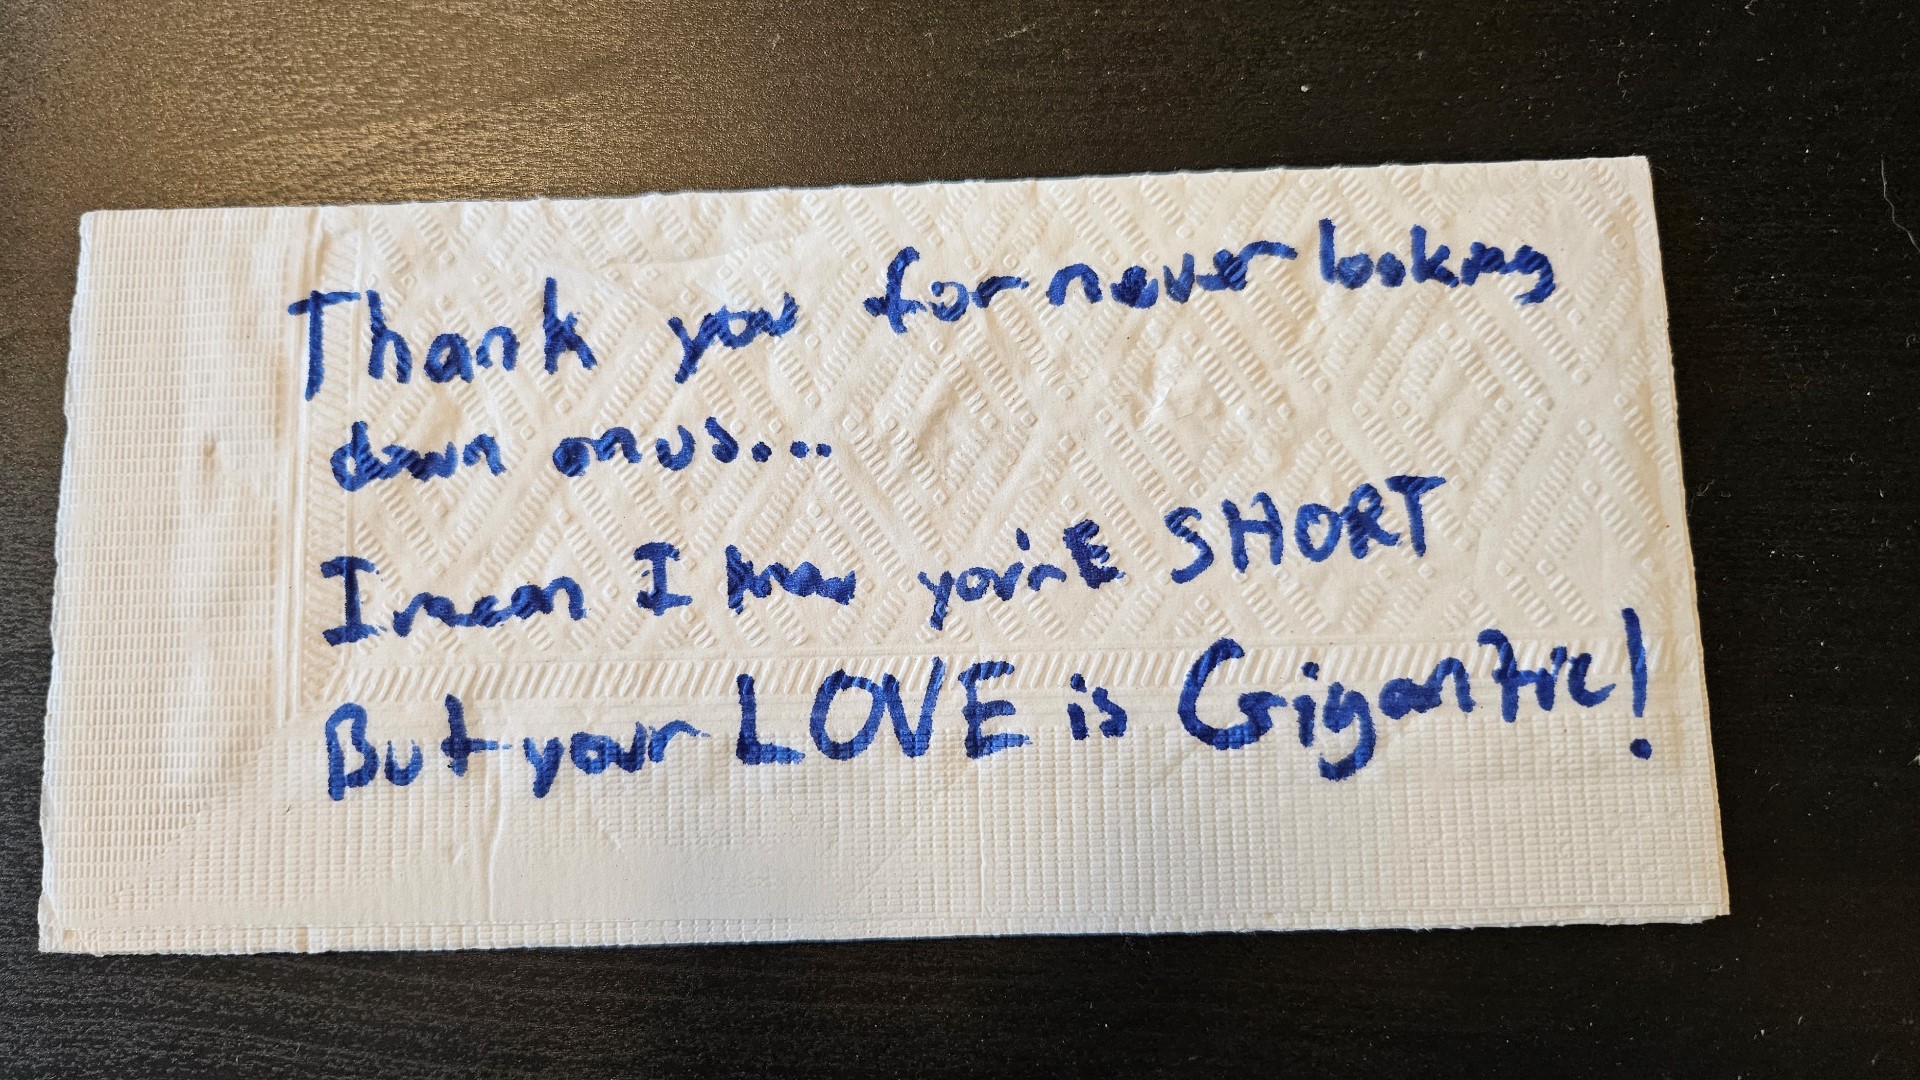 Thank you for never looking
down on us...
I mean I know you'rE SHORT
But your LOVE is Gigantic!